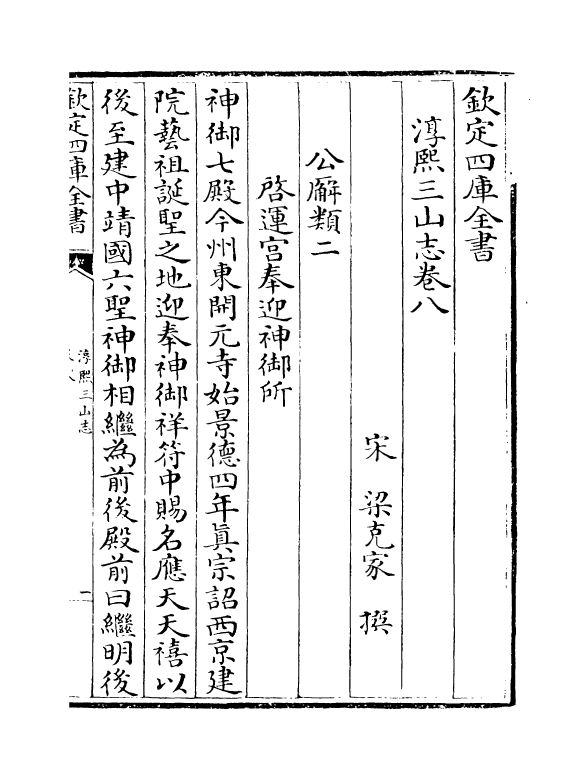 欽定四庫全書
淳熙三山志卷八
宋 梁克家 撰
公廨類二
啓運宫奉迎神御所
神御七殿今州東開元寺始景德四年真宗詔西京建
院藝祖誕聖之地迎奉神御祥符中賜名應天天禧以
後至建中靖國六聖神御相繼為前後殿前曰繼明後
欽定四庫全書
淳熙三山志
卷八